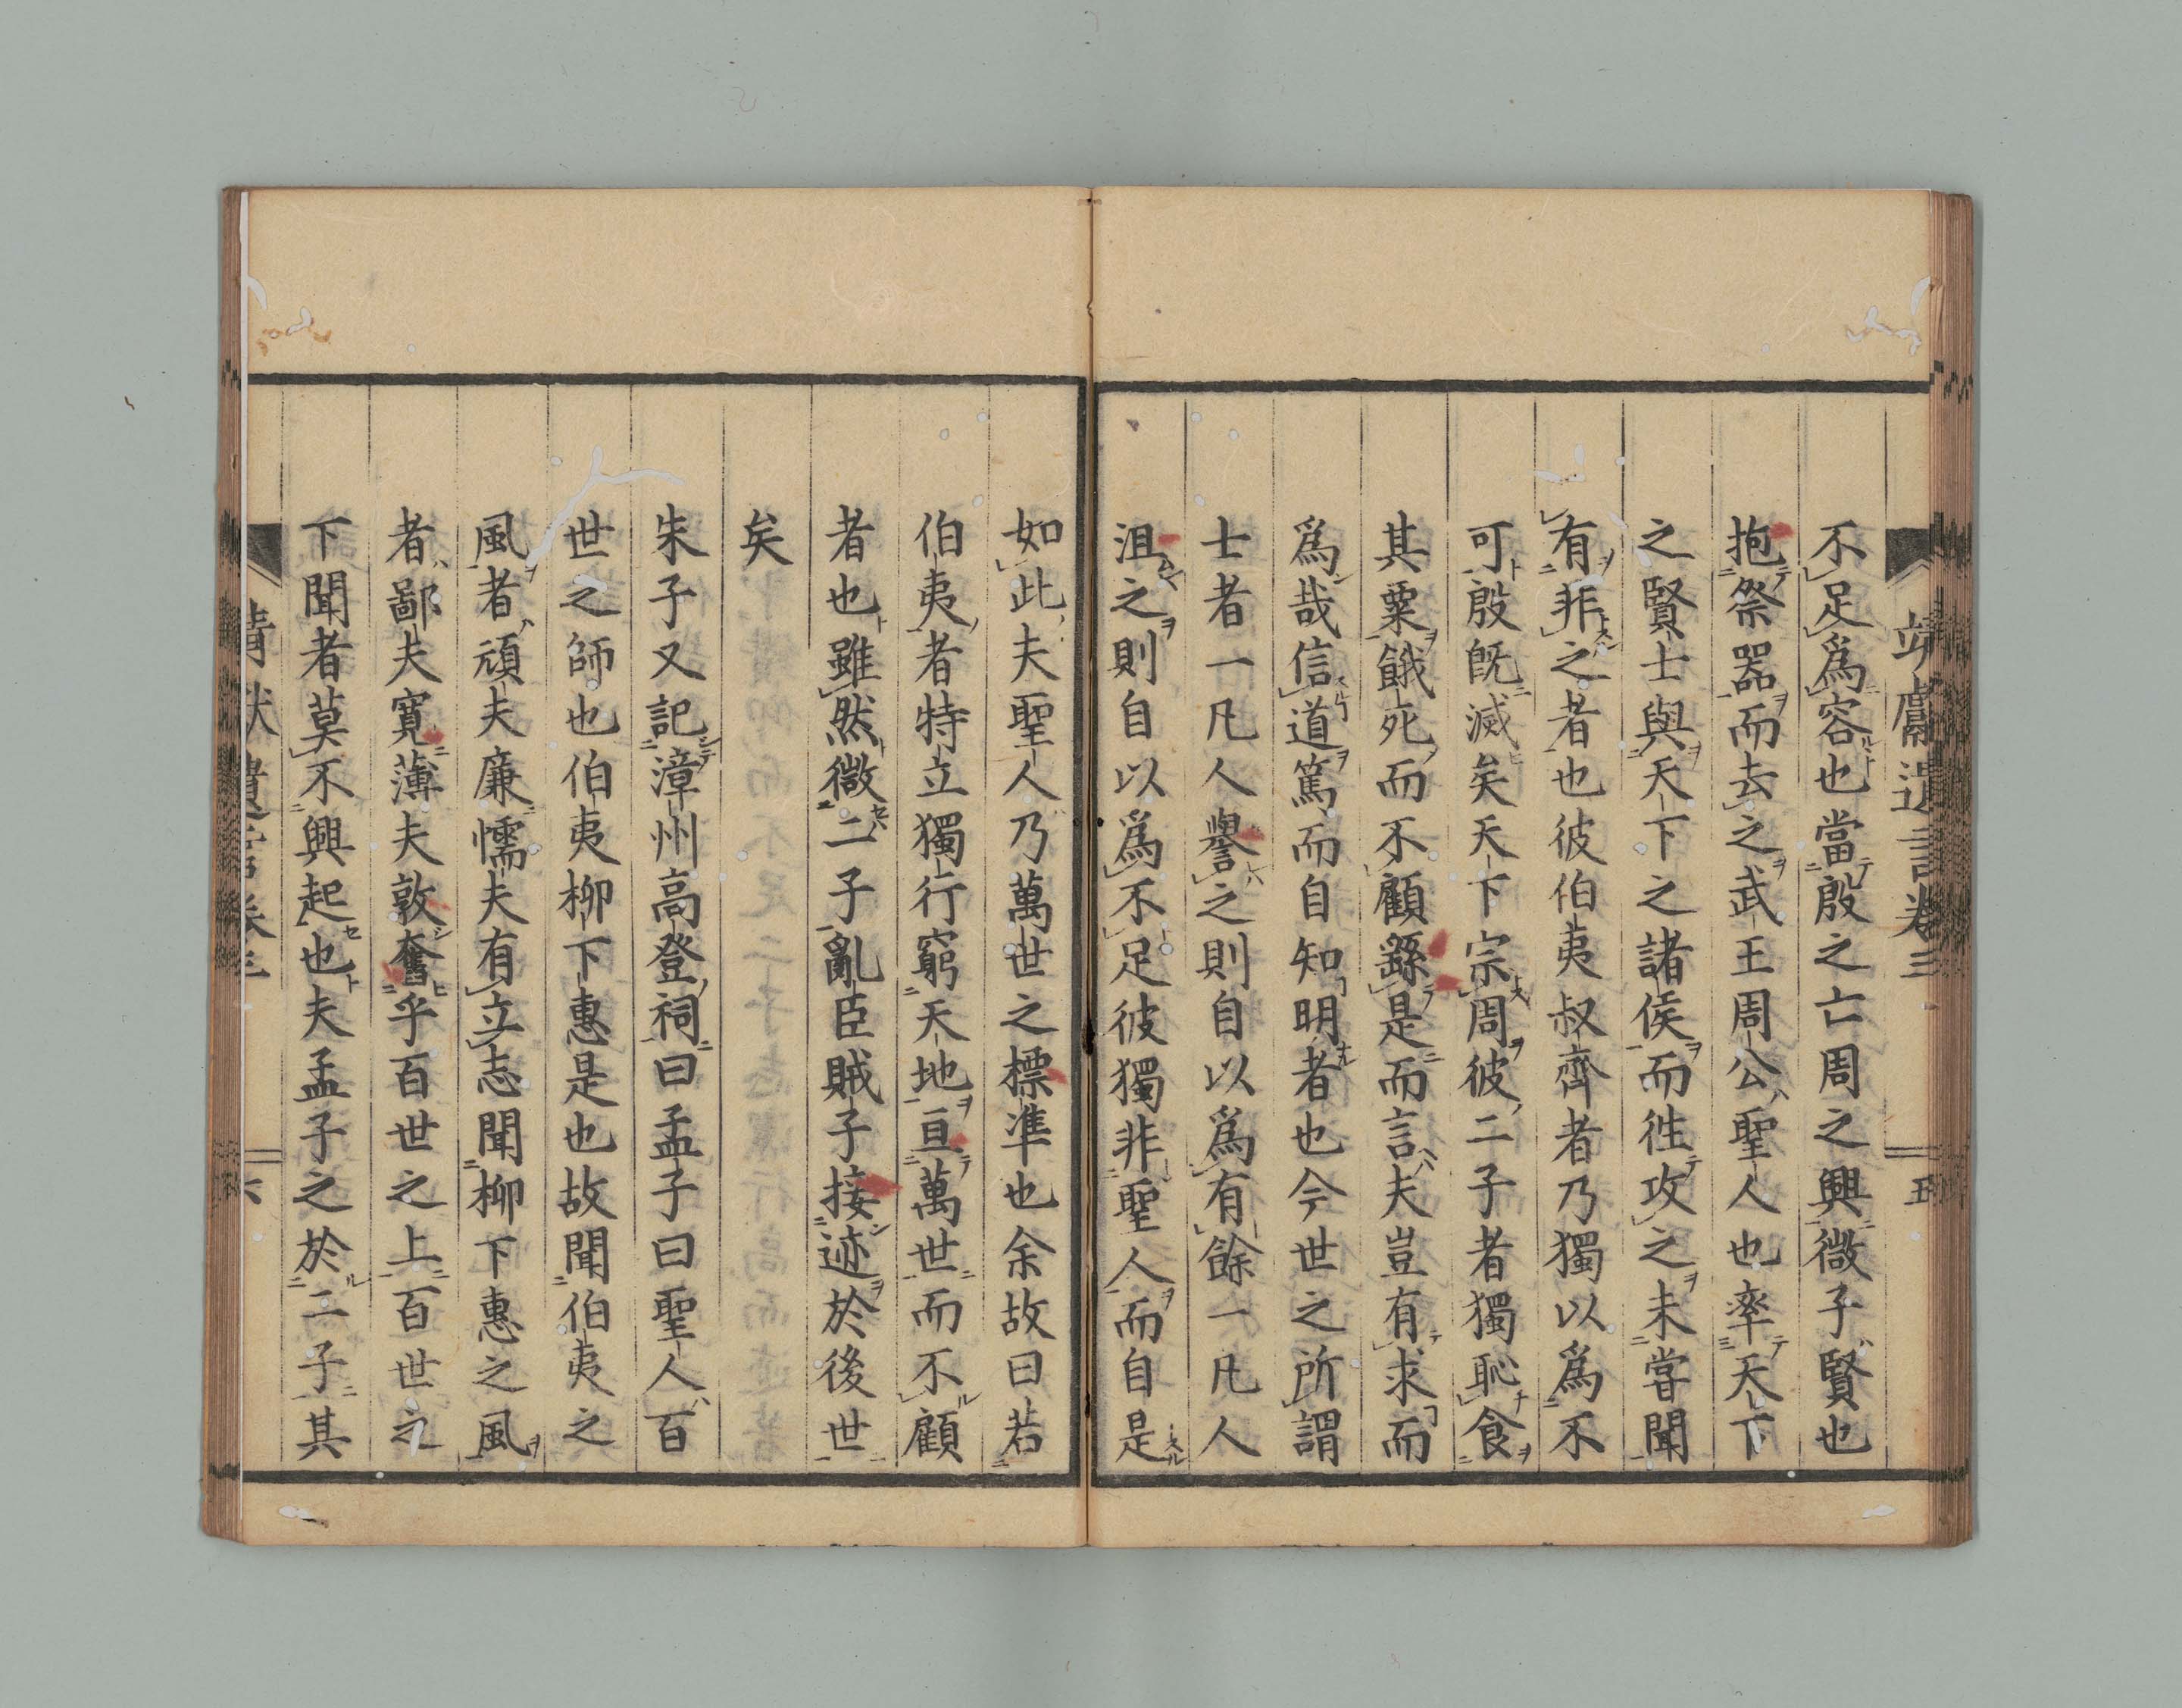 靖獻遺言卷三
五
不足爲容也當殷之亡周之興微子賢也
抱祭器而去之武王周公聖人也率天下
之賢士與天下之諸侯而徃攻之未甞聞
有非之者也彼伯夷叔齊者乃獨以爲不
可殷既滅矣天下宗周彼二子者獨恥食
其粟餓死而不顧繇是而言夫豈有求而
爲哉信道篤而自知明者也今世之所謂
士者一凡人譽之則自以爲有餘一凡人
沮之則自以爲不足彼獨非聖人而自是
如此夫聖人乃萬世之標準也余故曰若
伯夷者特立獨行窮天地亘萬世而不顧
者也雖然微二子亂臣賊子接迹於後世
矣
朱子又記漳州高登祠曰孟子曰聖人百
世之師也伯夷柳下惠是也故聞伯夷之
風者頑夫廉懦夫有立志聞柳下惠之風
者鄙夫寬薄夫敦奮乎百世之上百世之
下聞者莫不興起也夫孟子之於二子其
靖獻遺言卷三
六